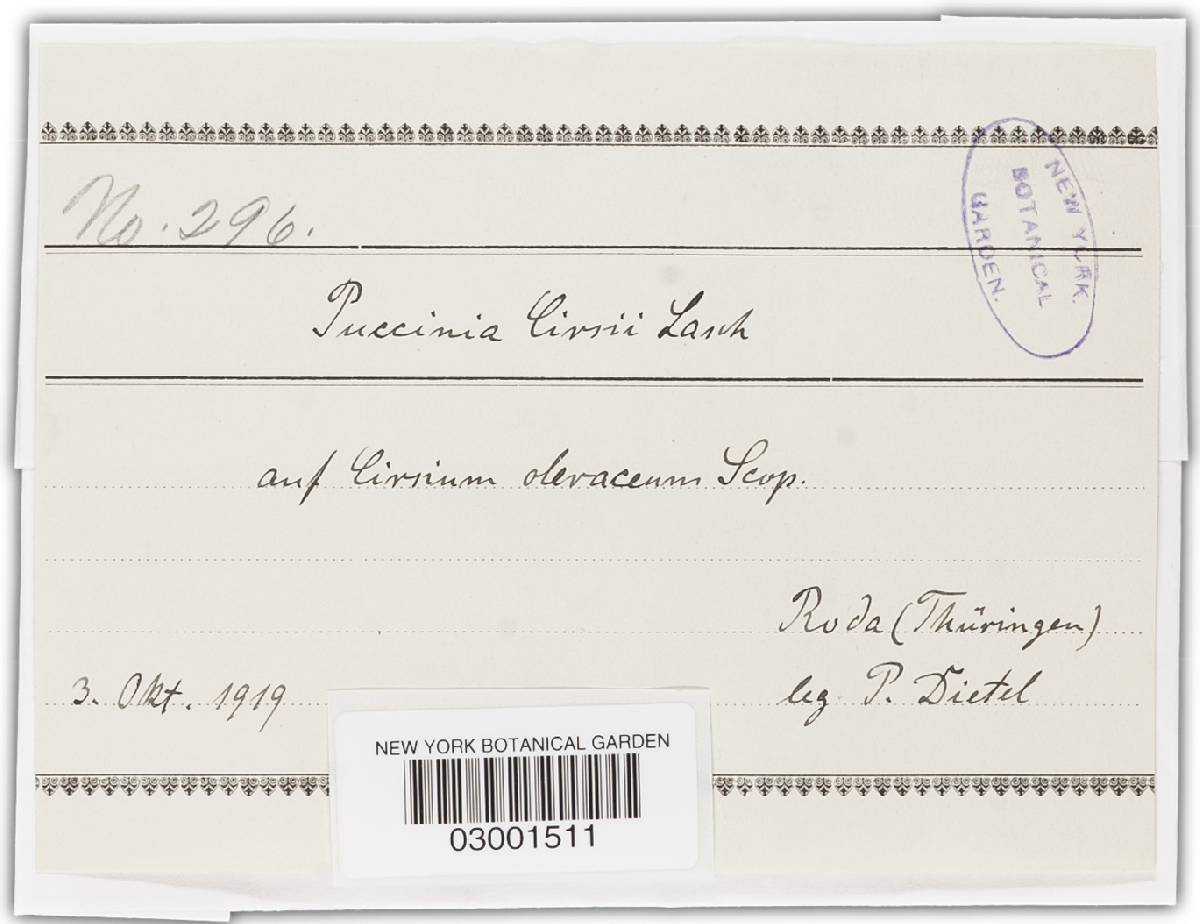 No. 296.
NEW YORK
BOTANICAL
GARDEN.
Puccinia Cirsii Lasch
auf Cirsium oleraceum Scop.
Roda (Thüringen)
3. Okt. 1919
leg. P. Dietel
NEW YORK BOTANICAL GARDEN
03001511